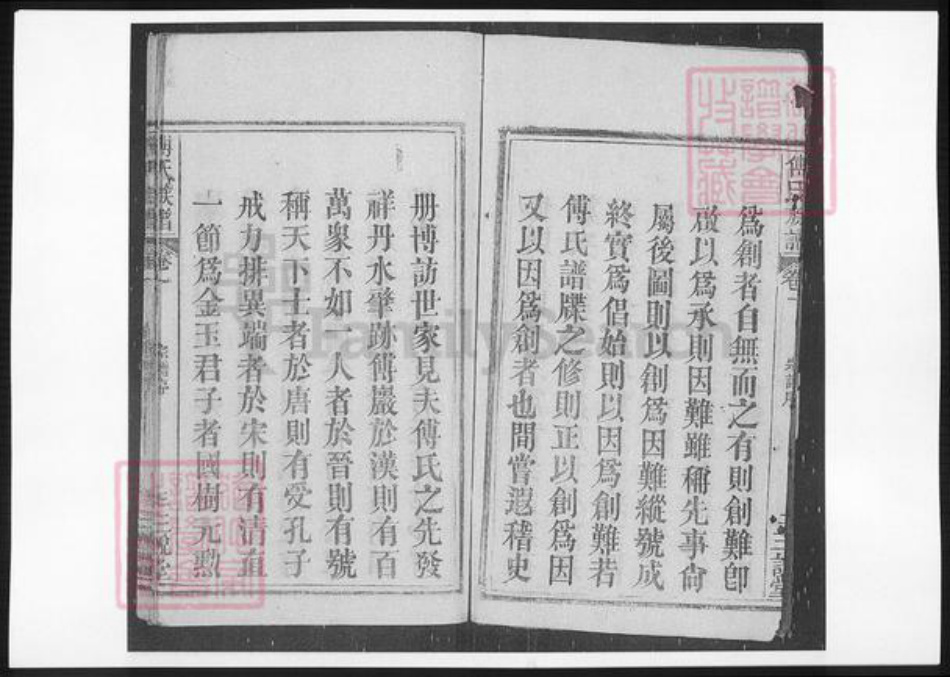 傅氏族譜
卷一
爲創者自無而之有則創難卽
啟以爲承則因難雖稱先事尙
屬後圖則以創爲因難縱號成
終實爲倡始則以因爲創難若
傅氏譜牒之修則正以創爲因
又以因爲創者也間嘗遐稽史
册博訪世家見夫傅氏之先發
祥丹水肇跡傅巖於漢則有百
萬衆不如一人者於晉則有號
稱天下士者於唐則有受孔子
戒力排異端者於宋則有清直
一節爲金玉君子者國樹元勲
傅氏族譜
卷一
FamilySearch